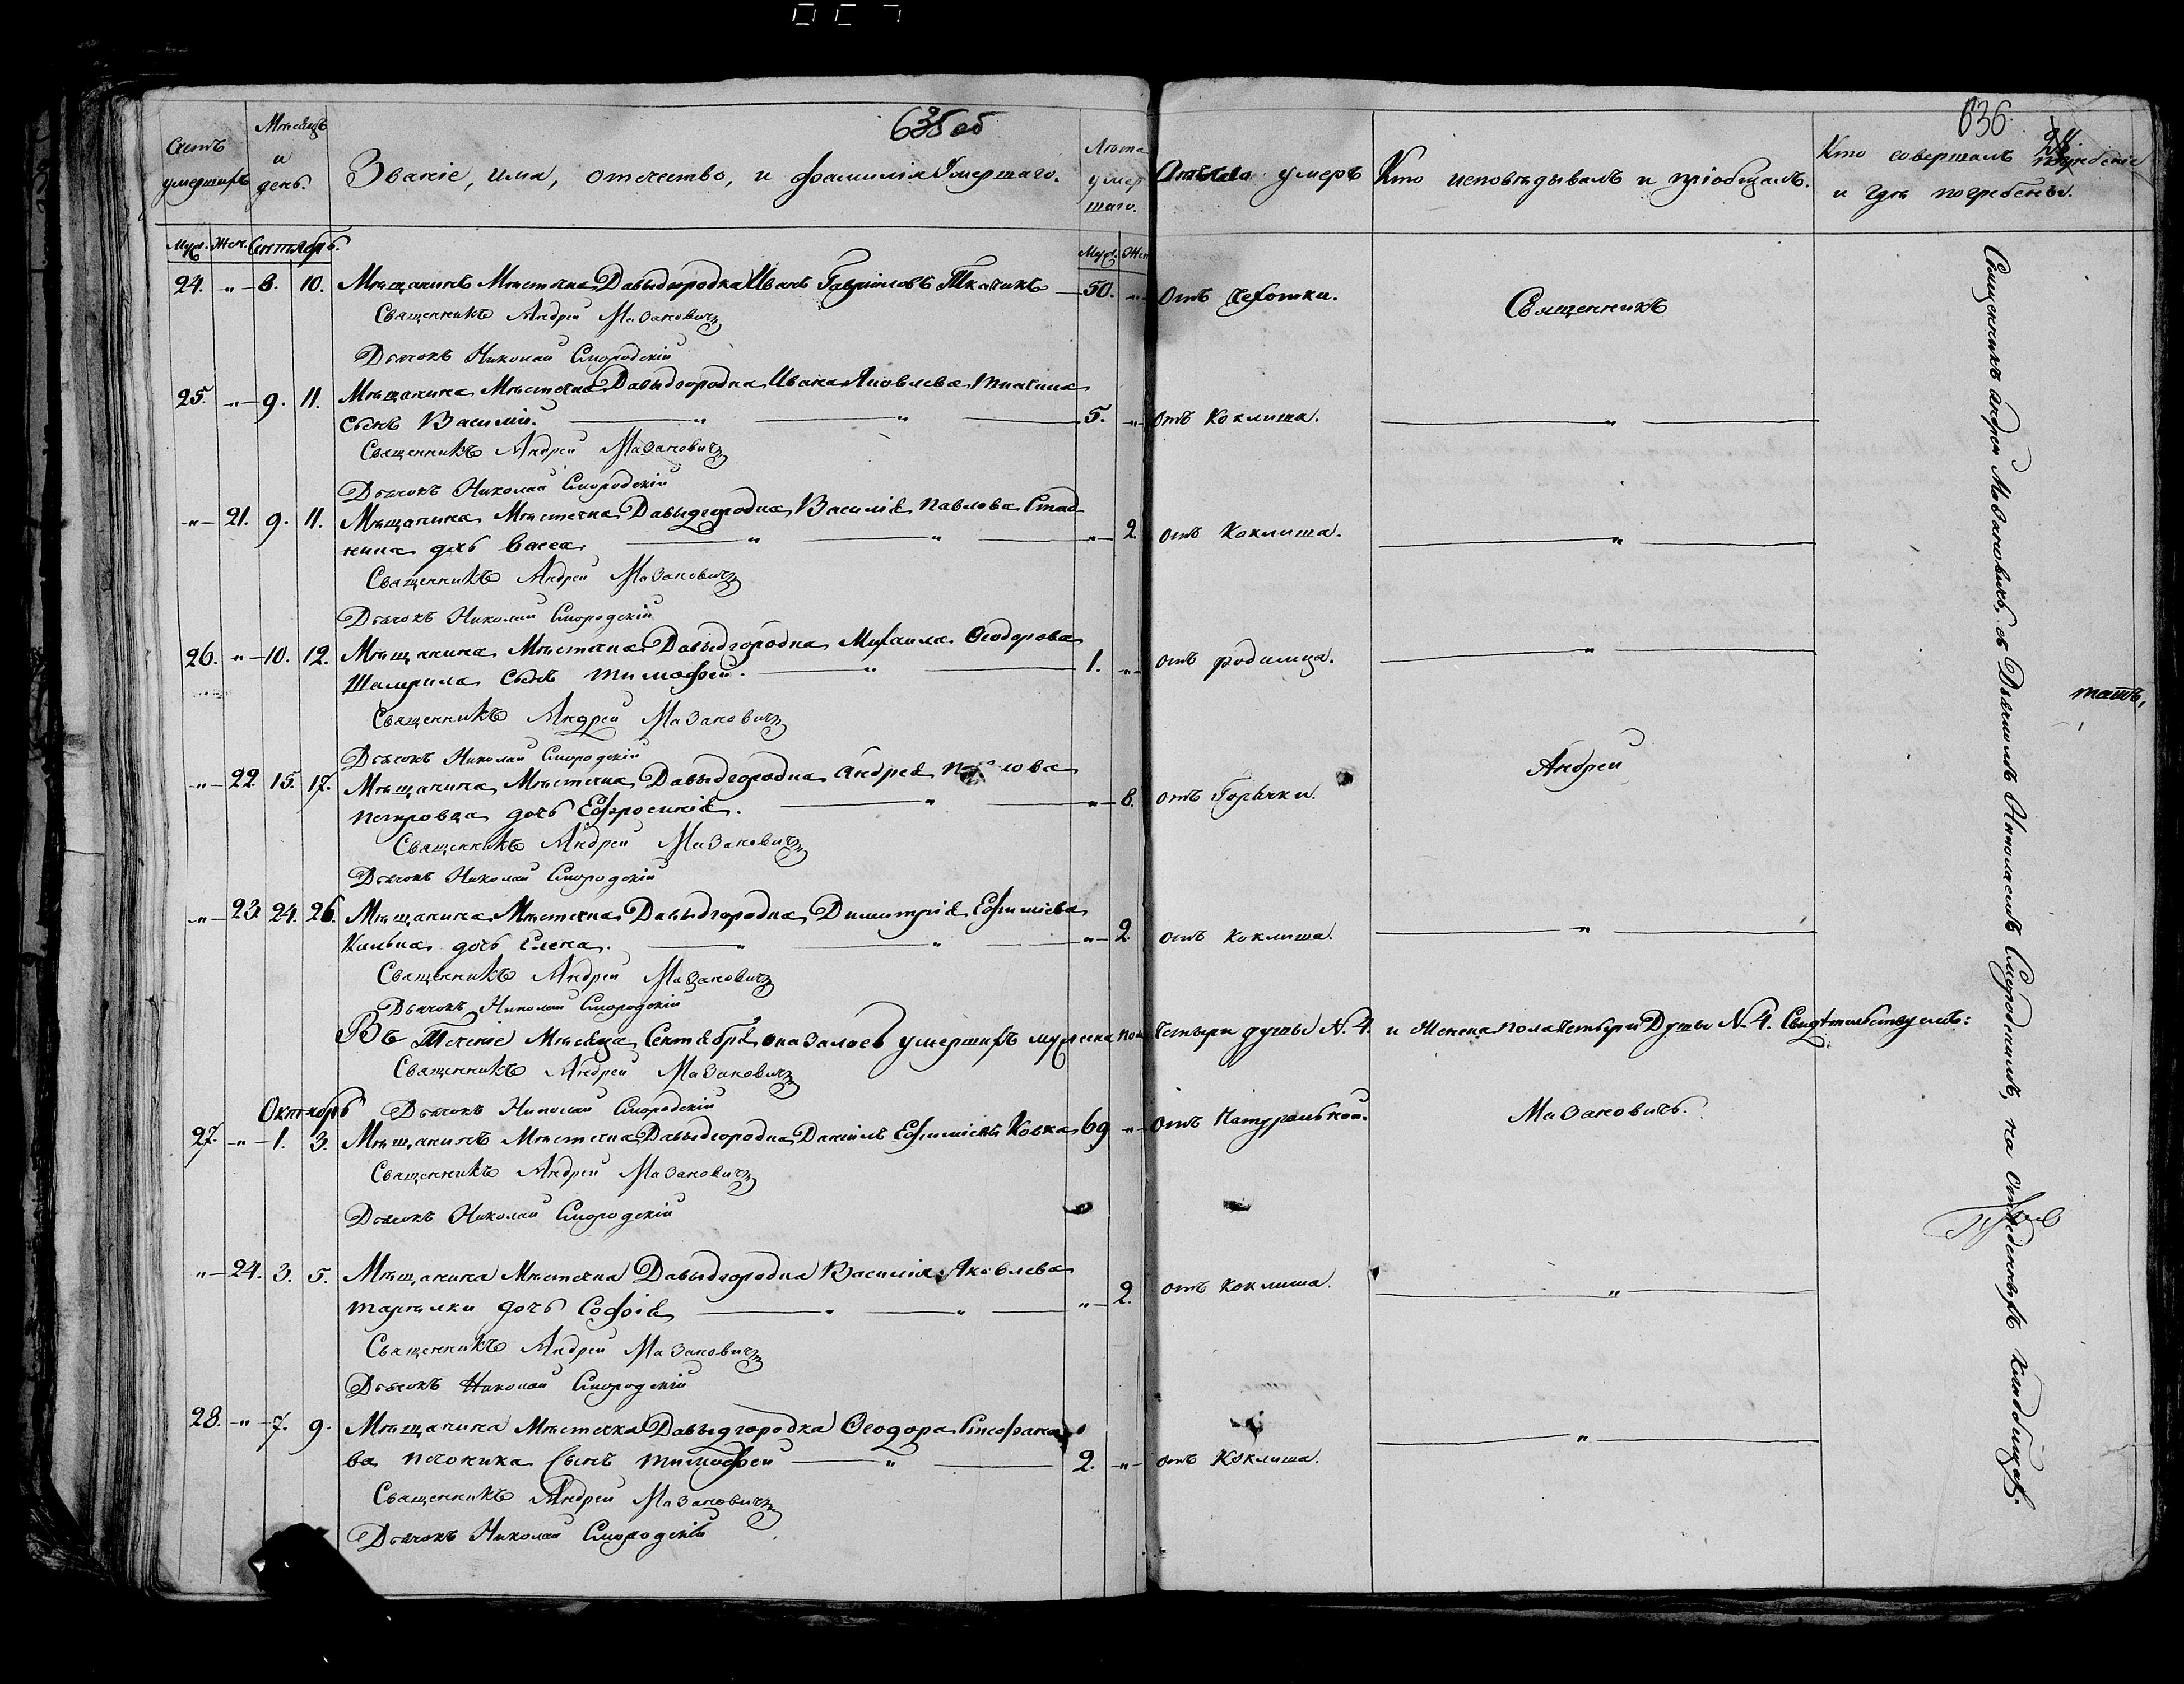 635 об
636.
Счетъ умершихъ
Мѣсяцъ и день.
Званіе, имя, отчество, и фамилія Умершаго.
Лѣта умершаго.
умеръ
Кто исповѣдывалъ и пріобщалъ.
Кто совершалъ погребеніе
и гдѣ погребены.
Муж. Жен. Сентябрь.
Муж. Жен
24. „ 8. 10. Мѣщанинъ Мѣстечка Давыдгородка Иванъ Гавріиловъ Ткачикъ 50. „ отъ чехотки. Священникъ
Священникъ Андрей Мазановичъ
Дьячокъ Николай Смородскій
25. „ 9. 11. Мѣщанина Мѣстечка Давыдгородка Ивана Яковлева
сынъ Василій. „ „ 5. „ отъ Коклиша. „
Священникъ Андрей Мазановичъ
Дьячокъ Николай Смородскій
„ 21. 9. 11. Мѣщанина Мѣстечка Давыдгородка Василія Павлова Стад
нина дочь Васса „ „ „ 2. отъ Коклиша. „
Священникъ Андрей Мазановичъ
Дьячокъ Николай Смородскій
26. „ 10. 12. Мѣщанина Мѣстечка Давыдгородка Михаила Ѳеодорова
сынъ Тимофей. „ 1. „ отъ родимца. „
Священникъ Андрей Мазановичъ
Дьячокъ Николай Смородскій
„ 22. 15. 17. Мѣщанина Мѣстечка Давыдгородка Андрея
Петровца дочь Ефросинія. „ „ 8. отъ Горячки. Андрей
Священникъ Андрей Мазановичъ
Дьячокъ Николай Смородскій
„ 23. 24. 26. Мѣщанина Мѣстечка Давыдгородка Димитрія Ефиміева
дочь Елена. „ „ „ 2. отъ Коклиша. „
Священникъ Андрей Мазановичъ
Дьячокъ Николай Смородскій
Въ Теченіе Мѣсяца Сентября оказалось умершихъ мужска пола Четыри душы N. 4. и Женска пола Четыри Душы N. 4. Свидѣтельствуемъ:
Священникъ Андрей Мазановичъ
Дьячокъ Николай Смородскій
Октябрь
27. „ 1. 3. Мѣщанинъ Мѣстечка Давыдгородка Даніилъ Ефиміевъ 69 „ отъ Натуральной. Мазановичъ.
Священникъ Андрей Мазановичъ
Дьячокъ Николай Смородскій
„ 24. 3. 5. Мѣщанина Мѣстечка Давыдгородка Василія Яковлева
дочь Софія „ „ „ 2. отъ Коклиша. „
Священникъ Андрей Мазановичъ
Дьячокъ Николай Смородскій
28. „ 7. 9. Мѣщанина Мѣстечка Давыдгородка Ѳеодора Стефано
ва сынъ Тимофей „ 2. „ отъ Коклиша. „
Священникъ Андрей Мазановичъ
Дьячокъ Николай Смородскій
Священникъ Андрей Мазановичъ, съ Дьячкомъ Николаемъ Смородскимъ, на кладбищахъ.